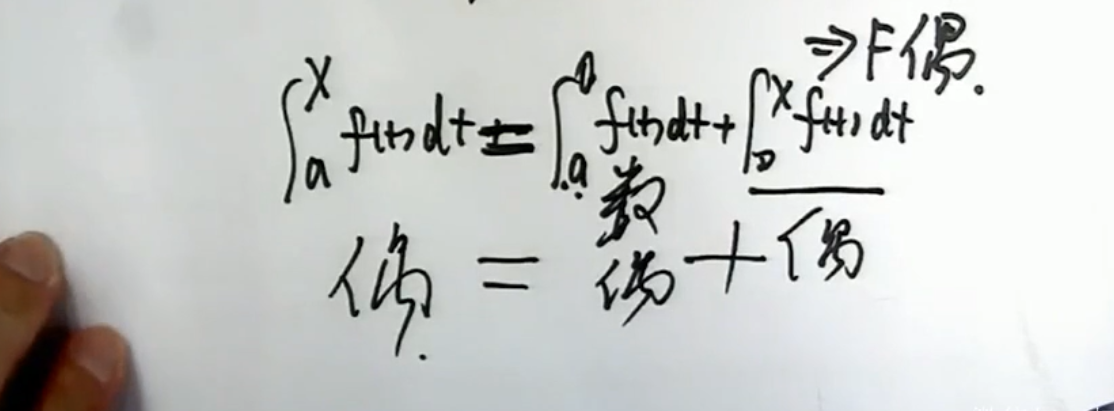 ⇒F偶.
∫ₐˣ f(t)dt = ∫ₐ⁰ f(t)dt + ∫₀ˣ f(t)dt
数
偶 = 偶 + 偶